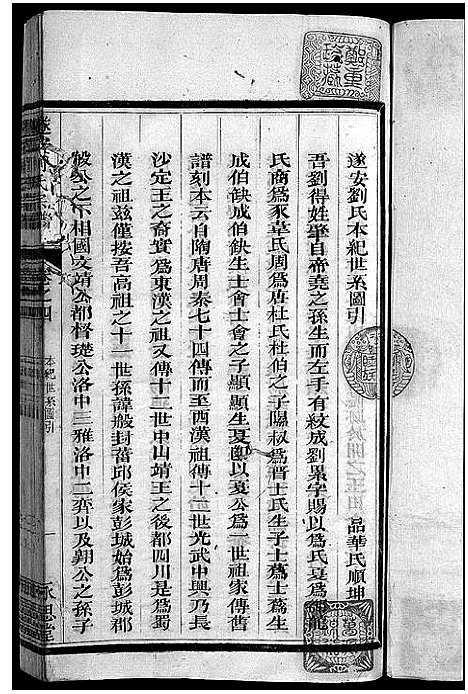 遂安劉氏本紀世系圖引
品華氏順坤
吾劉得姓肇自帝堯之孫生而左手有紋成劉累字賜以爲氏夏爲御龍
氏商爲豕韋氏周爲唐杜氏杜伯之子隰叔爲晋士氏生子士蒍士蒍生
成伯缺成伯缺生士會士會之子顯顯生夏輿以夏公爲一世祖家傳舊
譜刻本云自隋唐周秦七十四傳而至西漢祖傳十一世光武中興乃長
沙定王之裔實爲東漢之祖又傳十二世中山靖王之後都四川是爲蜀
漢之祖兹僅按吾高祖之十一世孫諱般封菑邱侯家彭城始爲彭城郡
之不相國文靖公都督璲公洛中三雅洛中二奔以及翔公之孫子
遂安劉氏宗譜
卷之四
本紀世系圖引
一
永思堂
鄭重珍藏